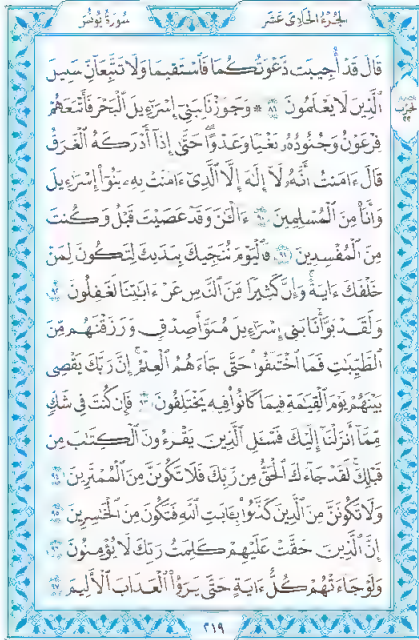 سُورَةُ يُونُسَ الجُزْءُ الحَادِي عَشَرَ
قَالَ قَدْ أُجِيبَت دَّعْوَتُكُمَا فَٱسْتَقِيمَا وَلَا تَتَّبِعَآنِّ سَبِيلَ
ٱلَّذِينَ لَا يَعْلَمُونَ ٨٩ ۞ وَجَٰوَزْنَا بِبَنِىٓ إِسْرَٰٓءِيلَ ٱلْبَحْرَ فَأَتْبَعَهُمْ
فِرْعَوْنُ وَجُنُودُهُۥ بَغْيًا وَعَدْوًا ۖ حَتَّىٰٓ إِذَآ أَدْرَكَهُ ٱلْغَرَقُ
قَالَ ءَامَنتُ أَنَّهُۥ لَآ إِلَٰهَ إِلَّا ٱلَّذِىٓ ءَامَنَتْ بِهِۦ بَنُوٓا۟ إِسْرَٰٓءِيلَ
وَأَنَا۠ مِنَ ٱلْمُسْلِمِينَ ٩٠ ءَآلْـَٰٔنَ وَقَدْ عَصَيْتَ قَبْلُ وَكُنتَ
مِنَ ٱلْمُفْسِدِينَ ٩١ فَٱلْيَوْمَ نُنَجِّيكَ بِبَدَنِكَ لِتَكُونَ لِمَنْ
خَلْفَكَ ءَايَةً ۚ وَإِنَّ كَثِيرًا مِّنَ ٱلنَّاسِ عَنْ ءَايَٰتِنَا لَغَٰفِلُونَ ٩٢
وَلَقَدْ بَوَّأْنَا بَنِىٓ إِسْرَٰٓءِيلَ مُبَوَّأَ صِدْقٍ وَرَزَقْنَٰهُم مِّنَ
ٱلطَّيِّبَٰتِ فَمَا ٱخْتَلَفُوا۟ حَتَّىٰ جَآءَهُمُ ٱلْعِلْمُ ۚ إِنَّ رَبَّكَ يَقْضِى
بَيْنَهُمْ يَوْمَ ٱلْقِيَٰمَةِ فِيمَا كَانُوا۟ فِيهِ يَخْتَلِفُونَ ٩٣ فَإِن كُنتَ فِى شَكٍّ
مِّمَّآ أَنزَلْنَآ إِلَيْكَ فَسْـَٔلِ ٱلَّذِينَ يَقْرَءُونَ ٱلْكِتَٰبَ مِن
قَبْلِكَ ۚ لَقَدْ جَآءَكَ ٱلْحَقُّ مِن رَّبِّكَ فَلَا تَكُونَنَّ مِنَ ٱلْمُمْتَرِينَ ٩٤
وَلَا تَكُونَنَّ مِنَ ٱلَّذِينَ كَذَّبُوا۟ بِـَٔايَٰتِ ٱللَّهِ فَتَكُونَ مِنَ ٱلْخَٰسِرِينَ ٩٥
إِنَّ ٱلَّذِينَ حَقَّتْ عَلَيْهِمْ كَلِمَتُ رَبِّكَ لَا يُؤْمِنُونَ ٩٦
وَلَوْ جَآءَتْهُمْ كُلُّ ءَايَةٍ حَتَّىٰ يَرَوُا۟ ٱلْعَذَابَ ٱلْأَلِيمَ ٩٧
٢١٩